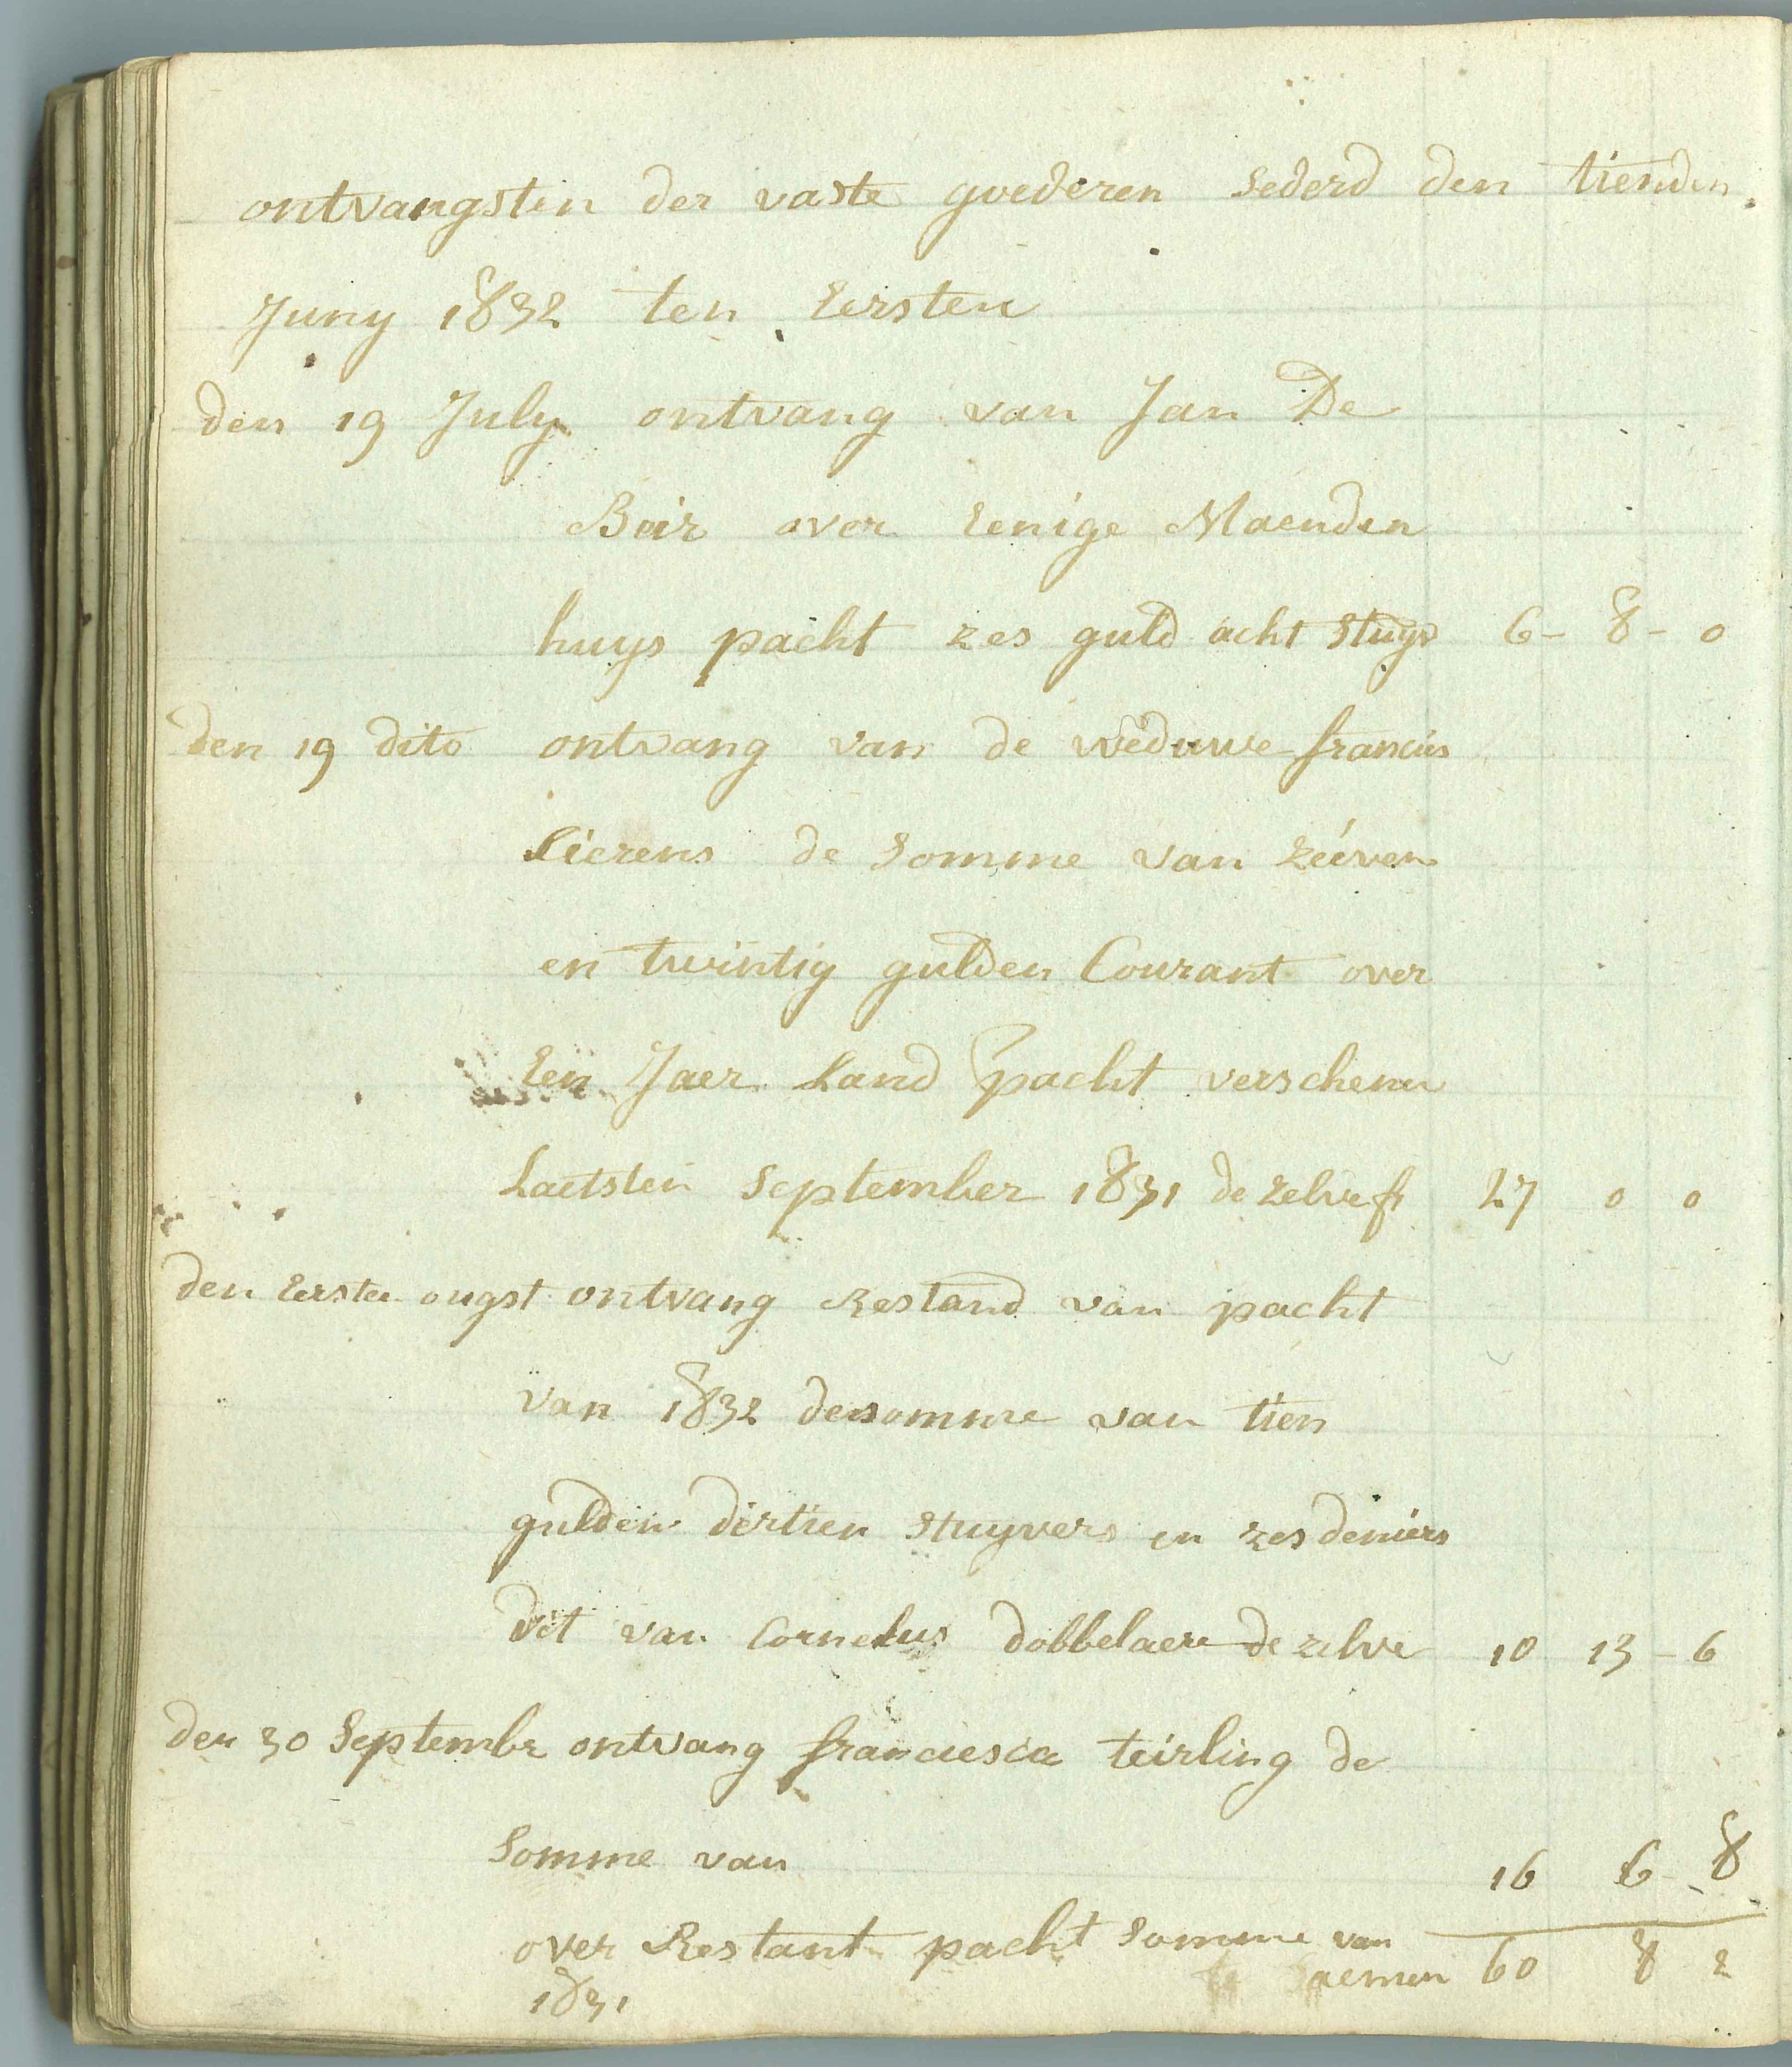 ontvangsten der vaste goederen sederd den tienden
Juny 1832 ten Eersten
den 19 July ontvang van Jan De
Beir over Eenige Maenden
huys pacht zes guld acht stuyv 6 - 8 - 0
den 19 dito ontvang van de weduwe francies
Lierens de somme van zéeven
en twintig gulden Courant over
Een Jaer Land pacht verschenen
Laetsten September 1831 de zelve fr 27 0 0
den Eersten ougst ontvang Restand van pacht
van 1832 de somme van tien
gulden dertien stuyvers en zes deniers
dit van Cornelus dobbelaere de zelve 10 13 - 6
den 30 Septembr ontvang franciesca teirling de
Somme van 16 6 - 8
over Restant pacht somme van
1831 saemen 60 8 2